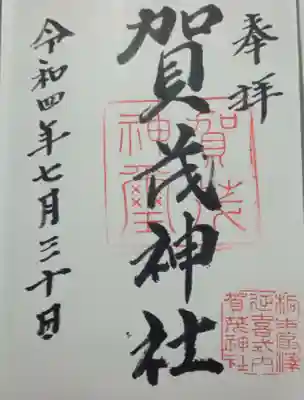 奉拝
賀茂神社
賀茂
神璽
令和四年七月三十日
延喜式内
賀茂神社